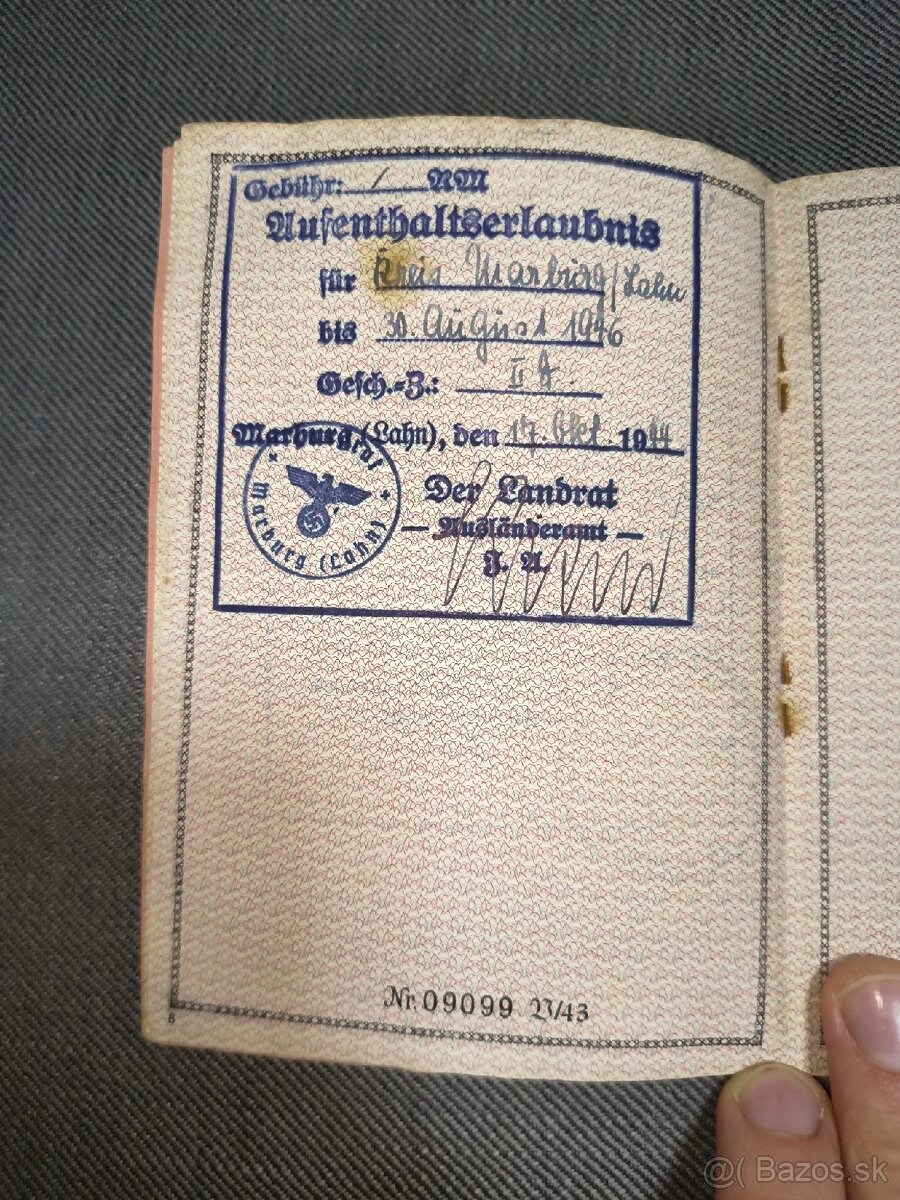 Gebühr: / RM
Aufenthaltserlaubnis
für Kreis Marburg/Lahn
bis 30. August 1946
Gesch.-Z.: II
Marburg (Lahn), den 17. Okt. 1944
Der Landrat
— Ausländeramt —
J. A.
Marburg (Lahn)
Nr. 09099 V/43
8
@( Bazos.sk